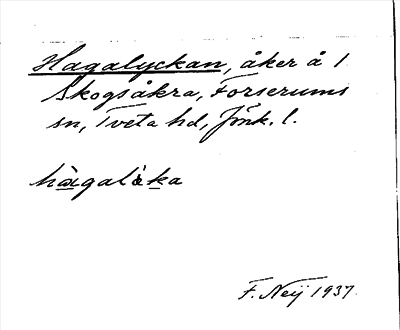 Hagalyckan, åker å 1
Skogsåkra, Forserums
sn, Tveta hd, Jönk. l.
F. Neij 1937.